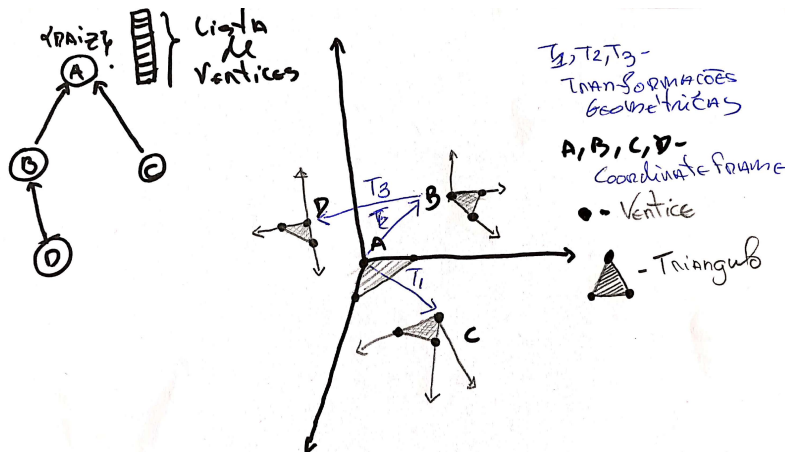 (RAIZ)
A
B
C
D
Lista
de
Vertices
T3
T2
T1
A
B
C
D
T1, T2, T3 -
TRANSFORMAÇÕES
GEOMÉTRICAS
A, B, C, D -
COORDINATE FRAME
- Vertice
- Triangulo